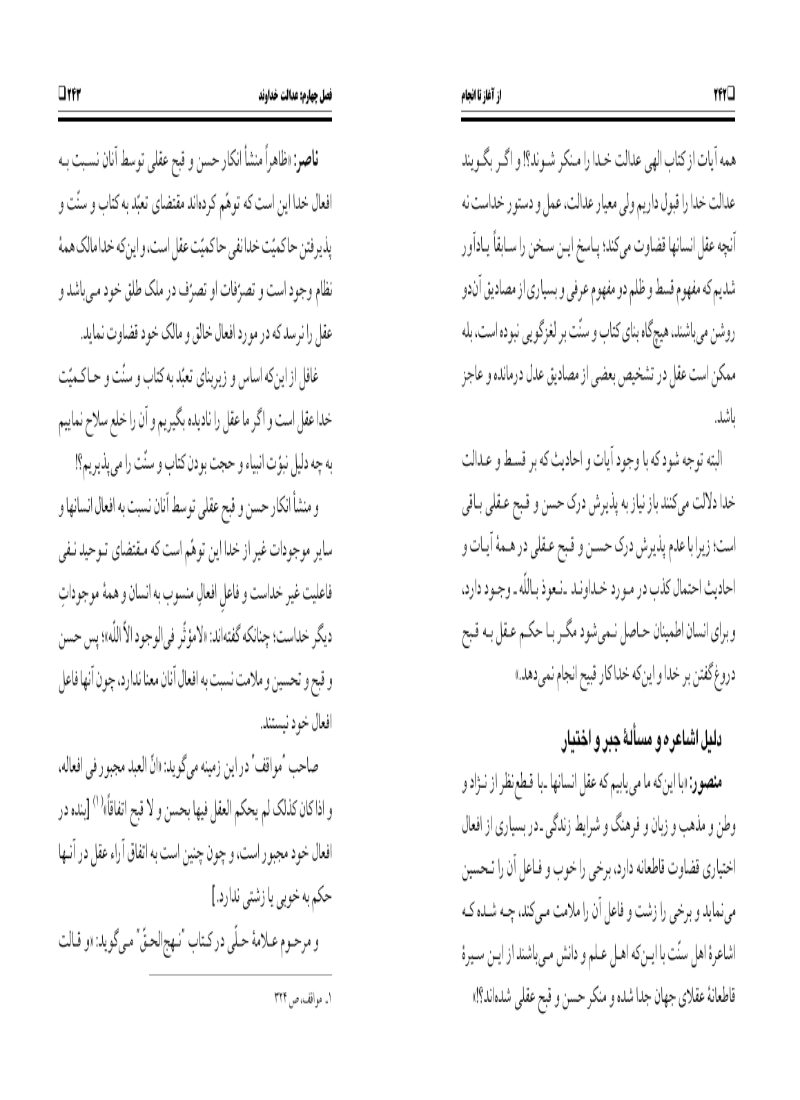 ❏۲۴۲ از آغاز تا انجام
همه آیات از کتاب الهی عدالت خدا را منکر شوند؟! و اگر بگویند
عدالت خدا را قبول داریم ولی معیار عدالت، عمل و دستور خداست نه
آنچه عقل انسانها قضاوت می‌کند؛ پاسخ این سخن را سابقاً یادآور
شدیم که مفهوم قسط و ظلم دو مفهوم عرفی و بسیاری از مصادیق آن‌دو
روشن می‌باشند، هیچ‌گاه بنای کتاب و سنّت بر لغزگویی نبوده است، بله
ممکن است عقل در تشخیص بعضی از مصادیق عدل درمانده و عاجز
باشد.
البته توجه شود که با وجود آیات و احادیث که بر قسط و عدالت
خدا دلالت می‌کنند باز نیاز به پذیرش درک حسن و قبح عقلی باقی
است؛ زیرا با عدم پذیرش درک حسن و قبح عقلی در همهٔ آیات و
احادیث احتمال کذب در مورد خداوند ـ‌نعوذ باللّه‌ـ وجود دارد،
و برای انسان اطمینان حاصل نمی‌شود مگر با حکم عقل به قبح
دروغ گفتن بر خدا و این‌که خدا کار قبیح انجام نمی‌دهد.»
دلیل اشاعره و مسألهٔ جبر و اختیار
منصور: «با این‌که ما می‌یابیم که عقل انسانها ـ‌با قطع‌نظر از نژاد و
وطن و مذهب و زبان و فرهنگ و شرایط زندگی‌ـ در بسیاری از افعال
اختیاری قضاوت قاطعانه دارد، برخی را خوب و فاعل آن را تحسین
می‌نماید و برخی را زشت و فاعل آن را ملامت می‌کند، چه شده که
اشاعرهٔ اهل سنّت با این‌که اهل علم و دانش می‌باشند از این سیرهٔ
قاطعانهٔ عقلای جهان جدا شده و منکر حسن و قبح عقلی شده‌اند؟!»
فصل چهارم: عدالت خداوند ۲۴۳❏
ناصر: «ظاهراً منشأ انکار حسن و قبح عقلی توسط آنان نسبت به
افعال خدا این است که توهّم کرده‌اند مقتضای تعبّد به کتاب و سنّت و
پذیرفتن حاکمیّت خدا نفی حاکمیّت عقل است، و این‌که خدا مالک همهٔ
نظام وجود است و تصرّفات او تصرّف در ملک طلق خود می‌باشد و
عقل را نرسد که در مورد افعال خالق و مالک خود قضاوت نماید.
غافل از این‌که اساس و زیربنای تعبّد به کتاب و سنّت و حاکمیّت
خدا عقل است و اگر ما عقل را نادیده بگیریم و آن را خلع سلاح نماییم
به چه دلیل نبوّت انبیاء و حجت بودن کتاب و سنّت را می‌پذیریم؟!
و منشأ انکار حسن و قبح عقلی توسط آنان نسبت به افعال انسانها و
سایر موجودات غیر از خدا این توهّم است که مقتضای توحید نفی
فاعلیت غیر خداست و فاعلِ افعالِ منسوب به انسان و همهٔ موجوداتِ
دیگر خداست؛ چنانکه گفته‌اند: «لامؤثّر فی‌الوجود الاّ اللّه»؛ پس حسن
و قبح و تحسین و ملامت نسبت به افعال آنان معنا ندارد، چون آنها فاعل
افعال خود نیستند.
صاحب "مواقف" در این زمینه می‌گوید: «انّ العبد مجبور فی افعاله،
و اذا کان کذلک لم یحکم العقل فیها بحسن و لا قبح اتفاقاً»(۱) [بنده در
افعال خود مجبور است، و چون چنین است به اتفاق آراء عقل در آنها
حکم به خوبی یا زشتی ندارد.]
و مرحوم علامهٔ حلّی در کتاب "نهج‌الحقّ" می‌گوید: «و قالت
۱ـ مواقف، ص ۳۲۴